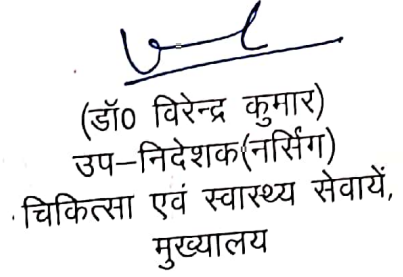 (डॉ0 विरेन्द्र कुमार)
उप-निदेशक(नर्सिंग)
चिकित्सा एवं स्वास्थ्य सेवायें,
मुख्यालय